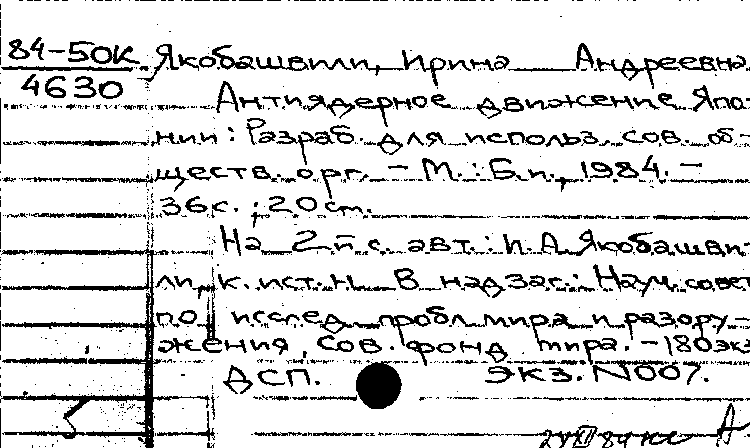 84-50К
4630
Якобашвили, Ирина Андреевна.
Антиядерное движение Япо-
нии: Разраб. для использ. сов. об-
ществ. орг. - М.: Б.и., 1984. -
36 с.; 20 см.
На 2-й с. авт.: И.А. Якобашви-
ли, к. ист. н. В надзаг.: Науч. совет
по исслед. пробл. мира и разору-
жения, сов. фонд мира. - 180 экз
ДСП. Экз. N007.
А